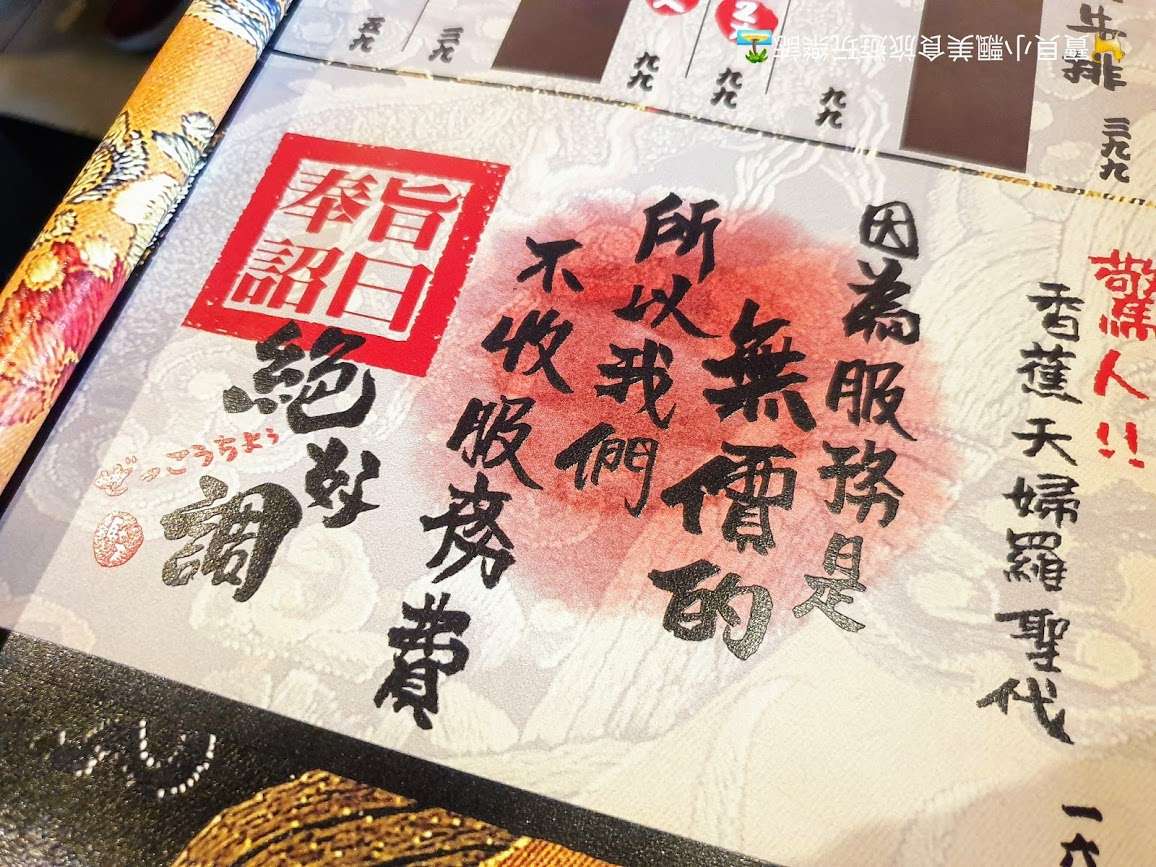 牛排 三九九
九九
九九
九九
三九
五九
寶貝小飄美食旅遊玩樂
驚人!!
香蕉天婦羅聖代
因為服務是
無價的
所以我們
不收服務費
奉旨
詔曰
絕好調
ぜっこうちょう